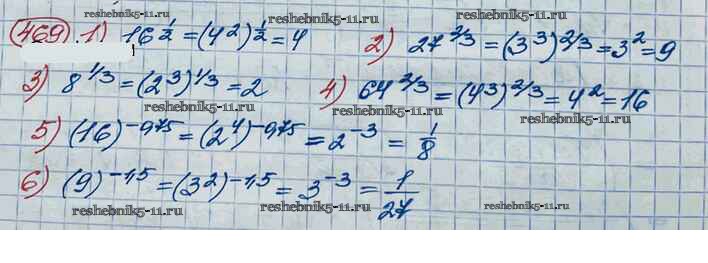 469. 1) 16^(1/2) = (4^2)^(1/2) = 4 2) 27^(2/3) = (3^3)^(2/3) = 3^2 = 9
reshebnik5-11.ru reshebnik5-11.ru
3) 8^(1/3) = (2^3)^(1/3) = 2 4) 64^(2/3) = (4^3)^(2/3) = 4^2 = 16
reshebnik5-11.ru reshebnik5-11.ru
5) (16)^(-0,75) = (2^4)^(-0,75) = 2^(-3) = 1/8
6) (9)^(-1,5) = (3^2)^(-1,5) = 3^(-3) = 1/27
reshebnik5-11.ru reshebnik5-11.ru reshebnik5-11.ru